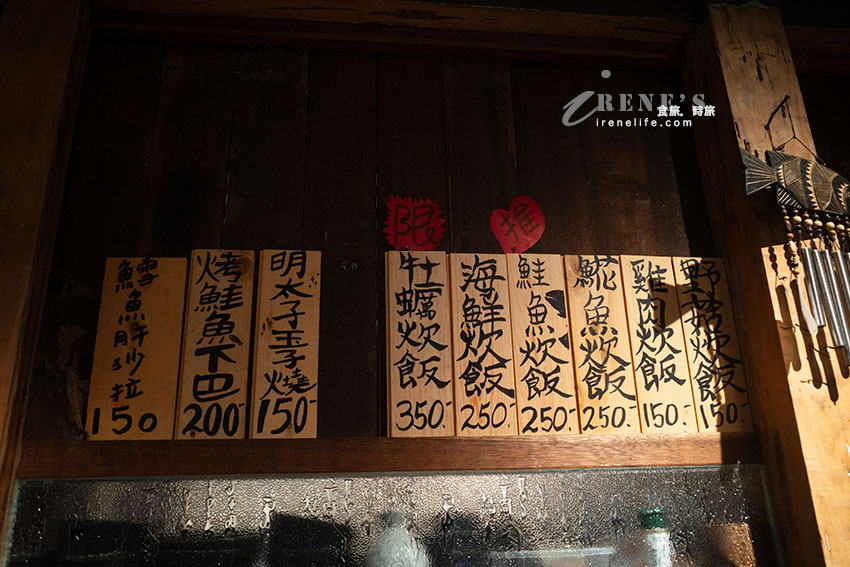 iRENE'S
食旅。時旅
irenelife.com
限
推
鱈魚肝沙拉
150
烤鮭魚下巴
200-
明太子玉子燒
150-
牡蠣炊飯
350-
海鮮炊飯
250-
鮭魚炊飯
250-
𩸽魚炊飯
250-
雞肉炊飯
150-
野菇炊飯
150-